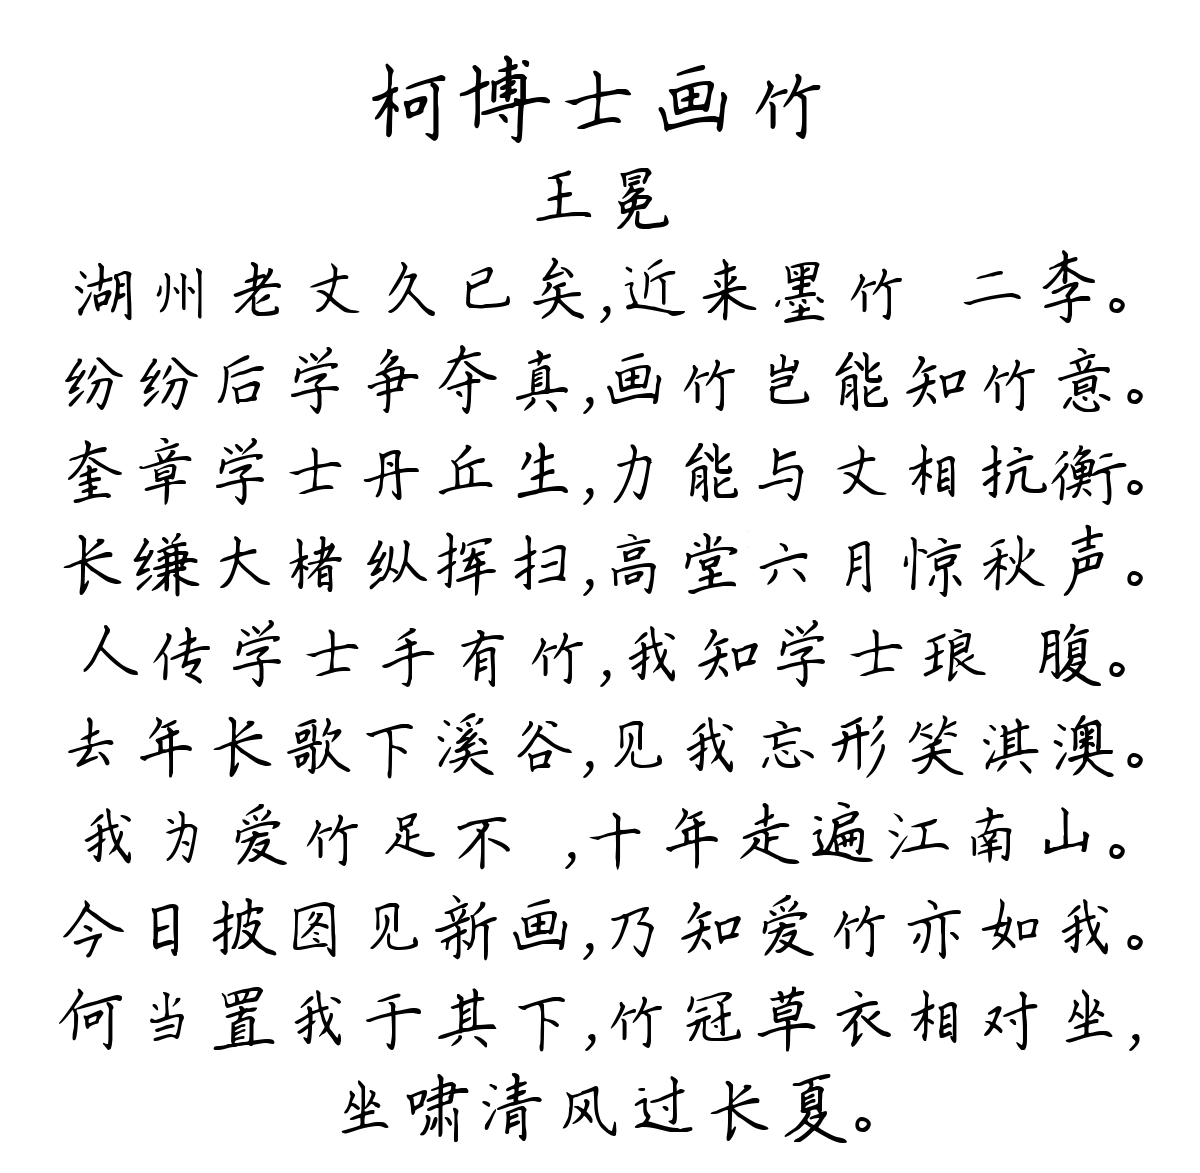 柯博士画竹
王冕
湖州老丈久已矣,近来墨竹 二李。
纷纷后学争夺真,画竹岂能知竹意。
奎章学士丹丘生,力能与丈相抗衡。
长缣大楮纵挥扫,高堂六月惊秋声。
人传学士手有竹,我知学士琅 腹。
去年长歌下溪谷,见我忘形笑淇澳。
我为爱竹足不 ,十年走遍江南山。
今日披图见新画,乃知爱竹亦如我。
何当置我于其下,竹冠草衣相对坐,
坐啸清风过长夏。